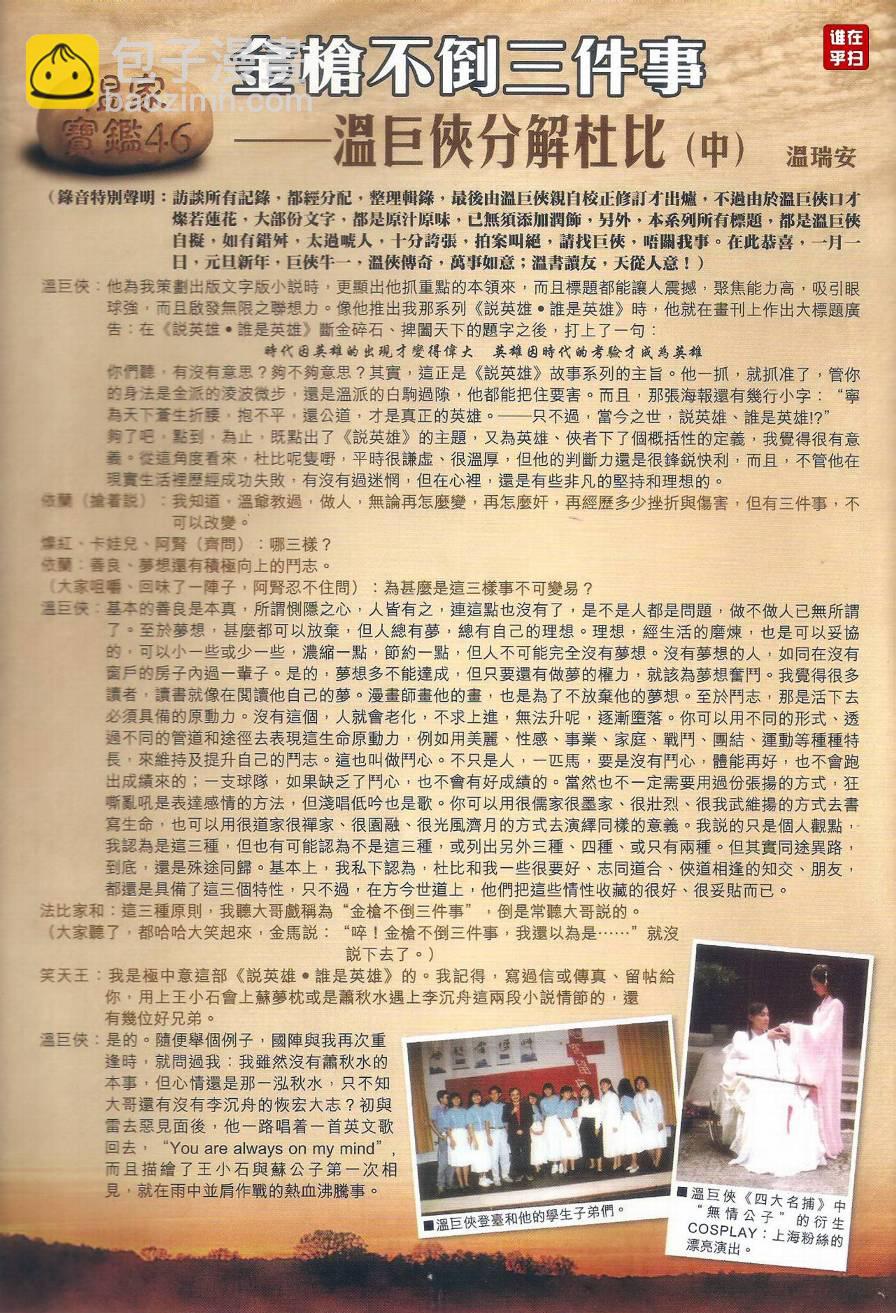 包子漫畫
baozimh.com
溫家
寶鑑46
金槍不倒三件事
谁在
乎扫
——溫巨俠分解杜比（中）
溫瑞安
（錄音特別聲明：訪談所有記錄，都經分配，整理輯錄，最後由溫巨俠親自校正修訂才出爐，不過由於溫巨俠口才
燦若蓮花，大部份文字，都是原汁原味，已無須添加潤飾，另外，本系列所有標題，都是溫巨俠
自擬，如有錯舛，太過唬人，十分誇張，拍案叫絕，請找巨俠，唔關我事。在此恭喜，一月一
日，元旦新年，巨俠牛一，溫俠傳奇，萬事如意；溫書讀友，天從人意！）
溫巨俠：他為我策劃出版文字版小說時，更顯出他抓重點的本領來，而且標題都能讓人震撼，聚焦能力高，吸引眼
球強，而且啟發無限之聯想力。像他推出我那系列《說英雄•誰是英雄》時，他就在畫刊上作出大標題廣
告：在《說英雄•誰是英雄》斷金碎石、捭闔天下的題字之後，打上了一句：
時代因英雄的出現才變得偉大　英雄因時代的考驗才成為英雄
你們聽，有沒有意思？夠不夠意思？其實，這正是《說英雄》故事系列的主旨。他一抓，就抓准了，管你
的身法是金派的凌波微步，還是溫派的白駒過隙，他都能把住要害。而且，那張海報還有幾行小字：“寧
為天下蒼生折腰，抱不平，還公道，才是真正的英雄。——只不過，當今之世，說英雄、誰是英雄!?”
夠了吧，點到，為止，既點出了《說英雄》的主題，又為英雄、俠者下了個概括性的定義，我覺得很有意
義。從這角度看來，杜比呢隻嘢，平時很謙虛、很溫厚，但他的判斷力還是很鋒銳快利，而且，不管他在
現實生活裡歷經成功失敗，有沒有過迷惘，但在心裡，還是有些非凡的堅持和理想的。
依蘭（搶着説）：我知道，溫爺教過，做人，無論再怎麼變，再怎麼奸，再經歷多少挫折與傷害，但有三件事，不
可以改變。
燦紅、卡娃兒、阿腎（齊問）：哪三樣？
依蘭：善良、夢想還有積極向上的鬥志。
（大家咀嚼、回味了一陣子，阿腎忍不住問）：為甚麼是這三樣事不可變易？
溫巨俠：基本的善良是本真，所謂惻隱之心，人皆有之，連這點也沒有了，是不是人都是問題，做不做人已無所謂
了。至於夢想，甚麼都可以放棄，但人總有夢，總有自己的理想。理想，經生活的磨煉，也是可以妥協
的，可以小一些或少一些，濃縮一點，節約一點，但人不可能完全沒有夢想。沒有夢想的人，如同在沒有
窗戶的房子內過一輩子。是的，夢想多不能達成，但只要還有做夢的權力，就該為夢想奮鬥。我覺得很多
讀者，讀書就像在閱讀他自己的夢。漫畫師畫他的畫，也是為了不放棄他的夢想。至於鬥志，那是活下去
必須具備的原動力。沒有這個，人就會老化，不求上進，無法升呢，逐漸墮落。你可以用不同的形式、透
過不同的管道和途徑去表現這生命原動力，例如用美麗、性感、事業、家庭、戰鬥、團結、運動等種種特
長，來維持及提升自己的鬥志。這也叫做鬥心。不只是人，一匹馬，要是沒有鬥心，體能再好，也不會跑
出成績來的；一支球隊，如果缺乏了鬥心，也不會有好成績的。當然也不一定需要用過份張揚的方式，狂
嘶亂吼是表達感情的方法，但淺唱低吟也是歌。你可以用很儒家很墨家、很壯烈、很我武維揚的方式去書
寫生命，也可以用很道家很禪家、很圓融、很光風濟月的方式去演繹同樣的意義。我說的只是個人觀點，
我認為是這三種，但也有可能認為不是這三種，或列出另外三種、四種、或只有兩種。但其實同途異路，
到底，還是殊途同歸。基本上，我私下認為，杜比和我一些很要好、志同道合、俠道相逢的知交、朋友，
都還是具備了這三個特性，只不過，在方今世道上，他們把這些情性收藏的很好、很妥貼而已。
法比家和：這三種原則，我聽大哥戲稱為“金槍不倒三件事”，倒是常聽大哥説的。
（大家聽了，都哈哈大笑起來，金馬説：“啐！金槍不倒三件事，我還以為是⋯⋯”就沒
説下去了。）
笑天王：我是極中意這部《說英雄•誰是英雄》的。我記得，寫過信或傳真、留帖給
你，用上王小石會上蘇夢枕或是蕭秋水遇上李沉舟這兩段小說情節的，還
有幾位好兄弟。
溫巨俠：是的。隨便舉個例子，國陣與我再次重
逢時，就問過我：我雖然沒有蕭秋水的
本事，但心情還是那一泓秋水，只不知
大哥還有沒有李沉舟的恢宏大志？初與
雷去惡見面後，他一路唱着一首英文歌
回去，“You are always on my mind”,
而且描繪了王小石與蘇公子第一次相
見，就在雨中並肩作戰的熱血沸騰事。
■溫巨俠登臺和他的學生子弟們。
■溫巨俠《四大名捕》中
“無情公子”的衍生
COSPLAY：上海粉絲的
漂亮演出。